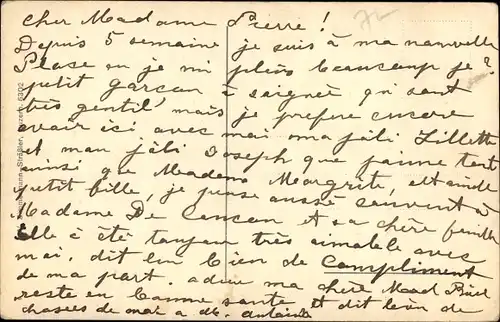 Cher Madame Pierre!
Depuis 5 semaine je suis à ma nouvelle
Place ou je mi plais beaucoup je 7
petit garcon à saigneé qui sont
très gentil mais je prefere encore
avoir ici avec moi ma joli Lillette
et mon joli Joseph que jaime tant
ainsi que Madame Margrite, et
petit fille, je pense aussi souvent à
Madame De et sa chère famille
Elle à été toujour très aimable avec
moi, dit lui bien de Compliment
de ma part. adieu ma chère Mad
reste en bonne sante et dit bien de
choses de moi a M. Antoine